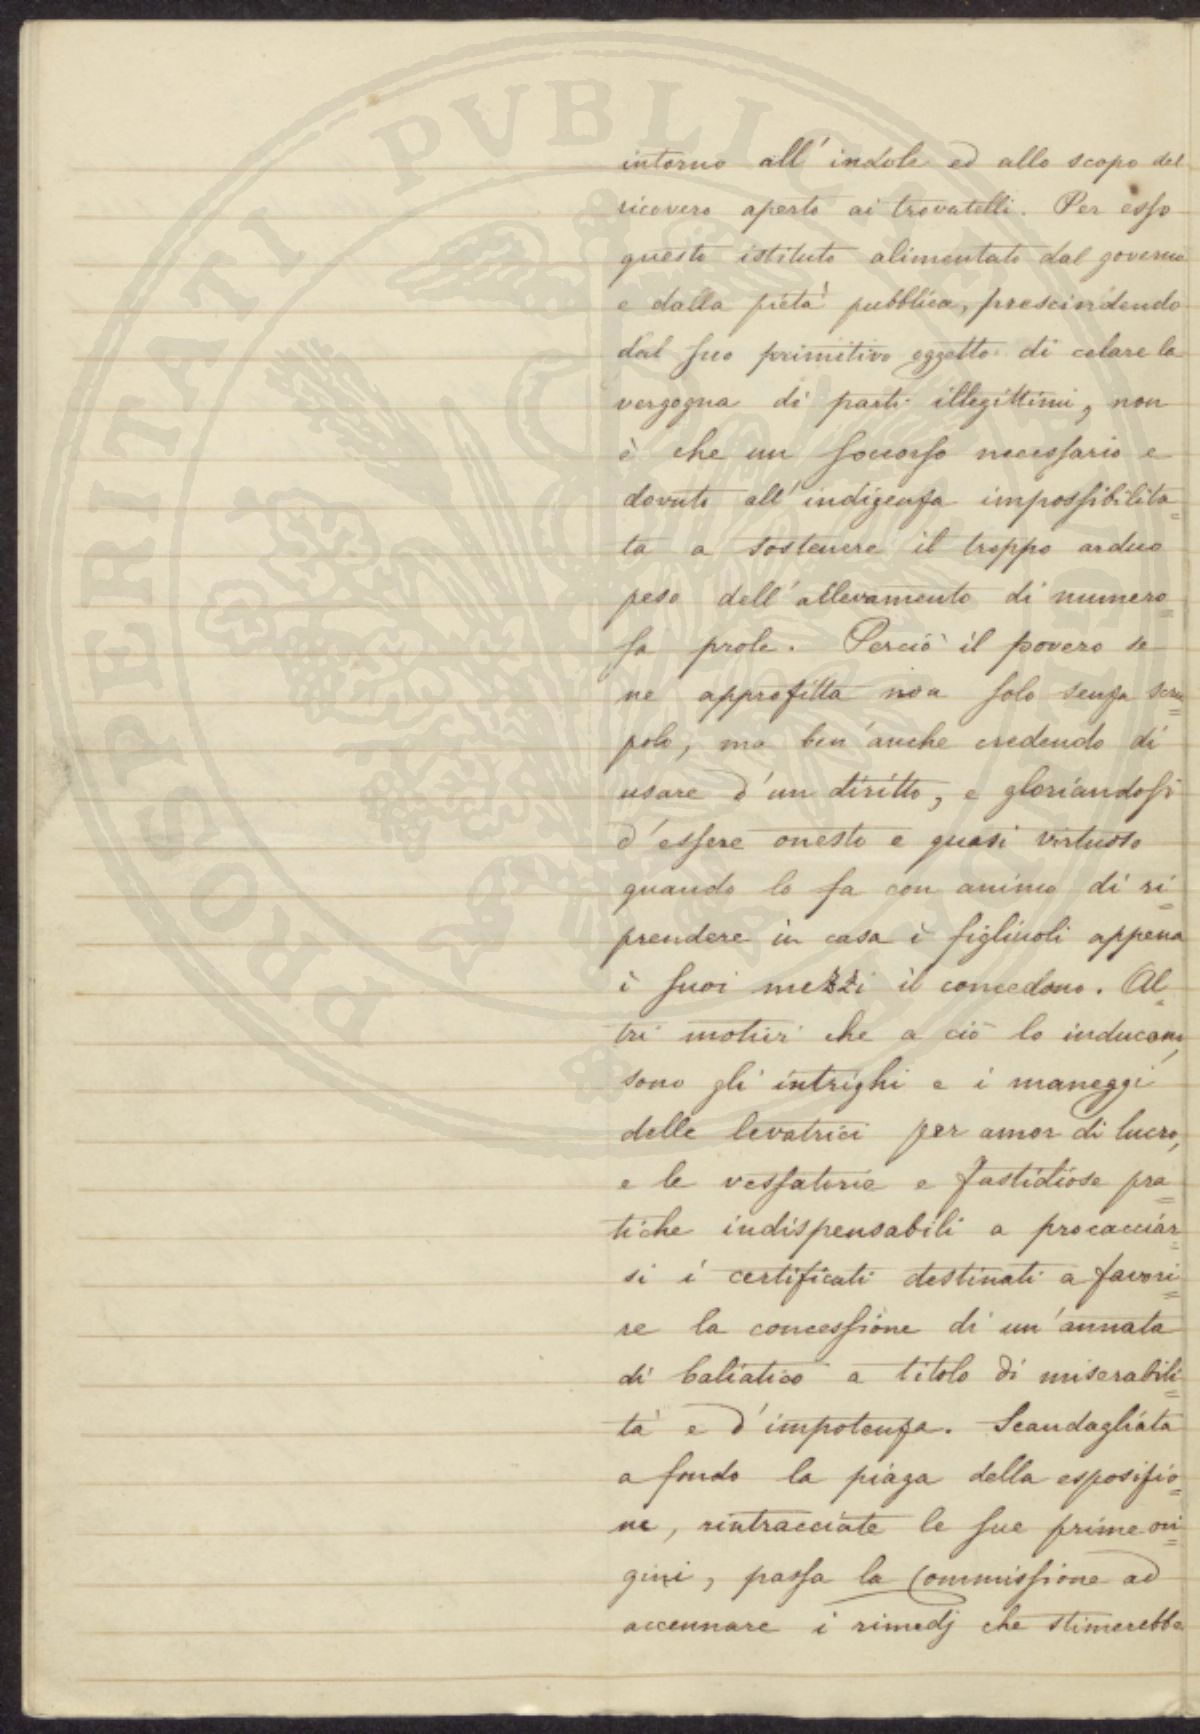 PROSPERITATI PVBLICAE
intorno all'indole ed allo scopo del
ricovero aperto ai trovatelli. Per esso
questo istituto alimentato dal governo
e dalla pietà pubblica, prescindendo
dal suo primitivo oggetto di celare la
vergogna di parti illegittimi, non
è che un soccorso necessario e
dovuto all'indigenza impossibilita=
ta a sostenere il troppo arduo
peso dell'allevamento di numero=
sa prole. Perciò il povero se
ne approfitta non solo senza scru=
polo, ma ben'anche credendo di
usare d'un diritto, e gloriandosi
d'essere onesto e quasi virtuoso
quando lo fa con animo di ri=
prendere in casa i figliuoli appena
i suoi mezzi il concedono. Al=
tri motivi che a ciò lo inducono,
sono gli intrighi e i maneggi
delle levatrici per amor di lucro,
e le vessatorie e fastidiose pra=
tiche indispensabili a procacciar=
si i certificati destinati a favori=
re la concessione di un'annata
di baliatico a titolo di miserabili=
tà e d'impotenza. Scandagliata
a fondo la piaga della esposizio=
ne, rintracciate le sue prime ori=
gini, passa la Commissione ad
accennare i rimedj che stimerebbe